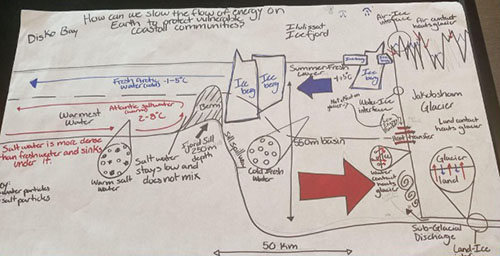 How can we slow the flow of energy on
Earth to protect vulnerable
coastal communities?
Disko Bay
Ilulissat
Icefjord
Air-Ice
interface
Air contact
heats glacier
Fresh Arctic
Water (cold) -1-5°C
Ice
berg
Ice
berg
Summer-Fresh
Layer
Iceberg
Ice
berg
Jakobshavn
Glacier
Atlantic saltwater
(warm)
2-8°C
Warmest
Water
Berm
Water-Ice
Interface
Land contact
heats glacier
Salt water is more dense
than freshwater and sinks
under it.
Fjord Sill
250m
depth
Sill Spillway
550m basin
Heat
transfer
Salt water
stays low and
does not mix
Warm salt
Water
Cold Fresh
Water
Water
contact
heats
glacier
Glacier
land
water particles
salt particles
50 Km
Sub-Glacial
Discharge
Land-Ice